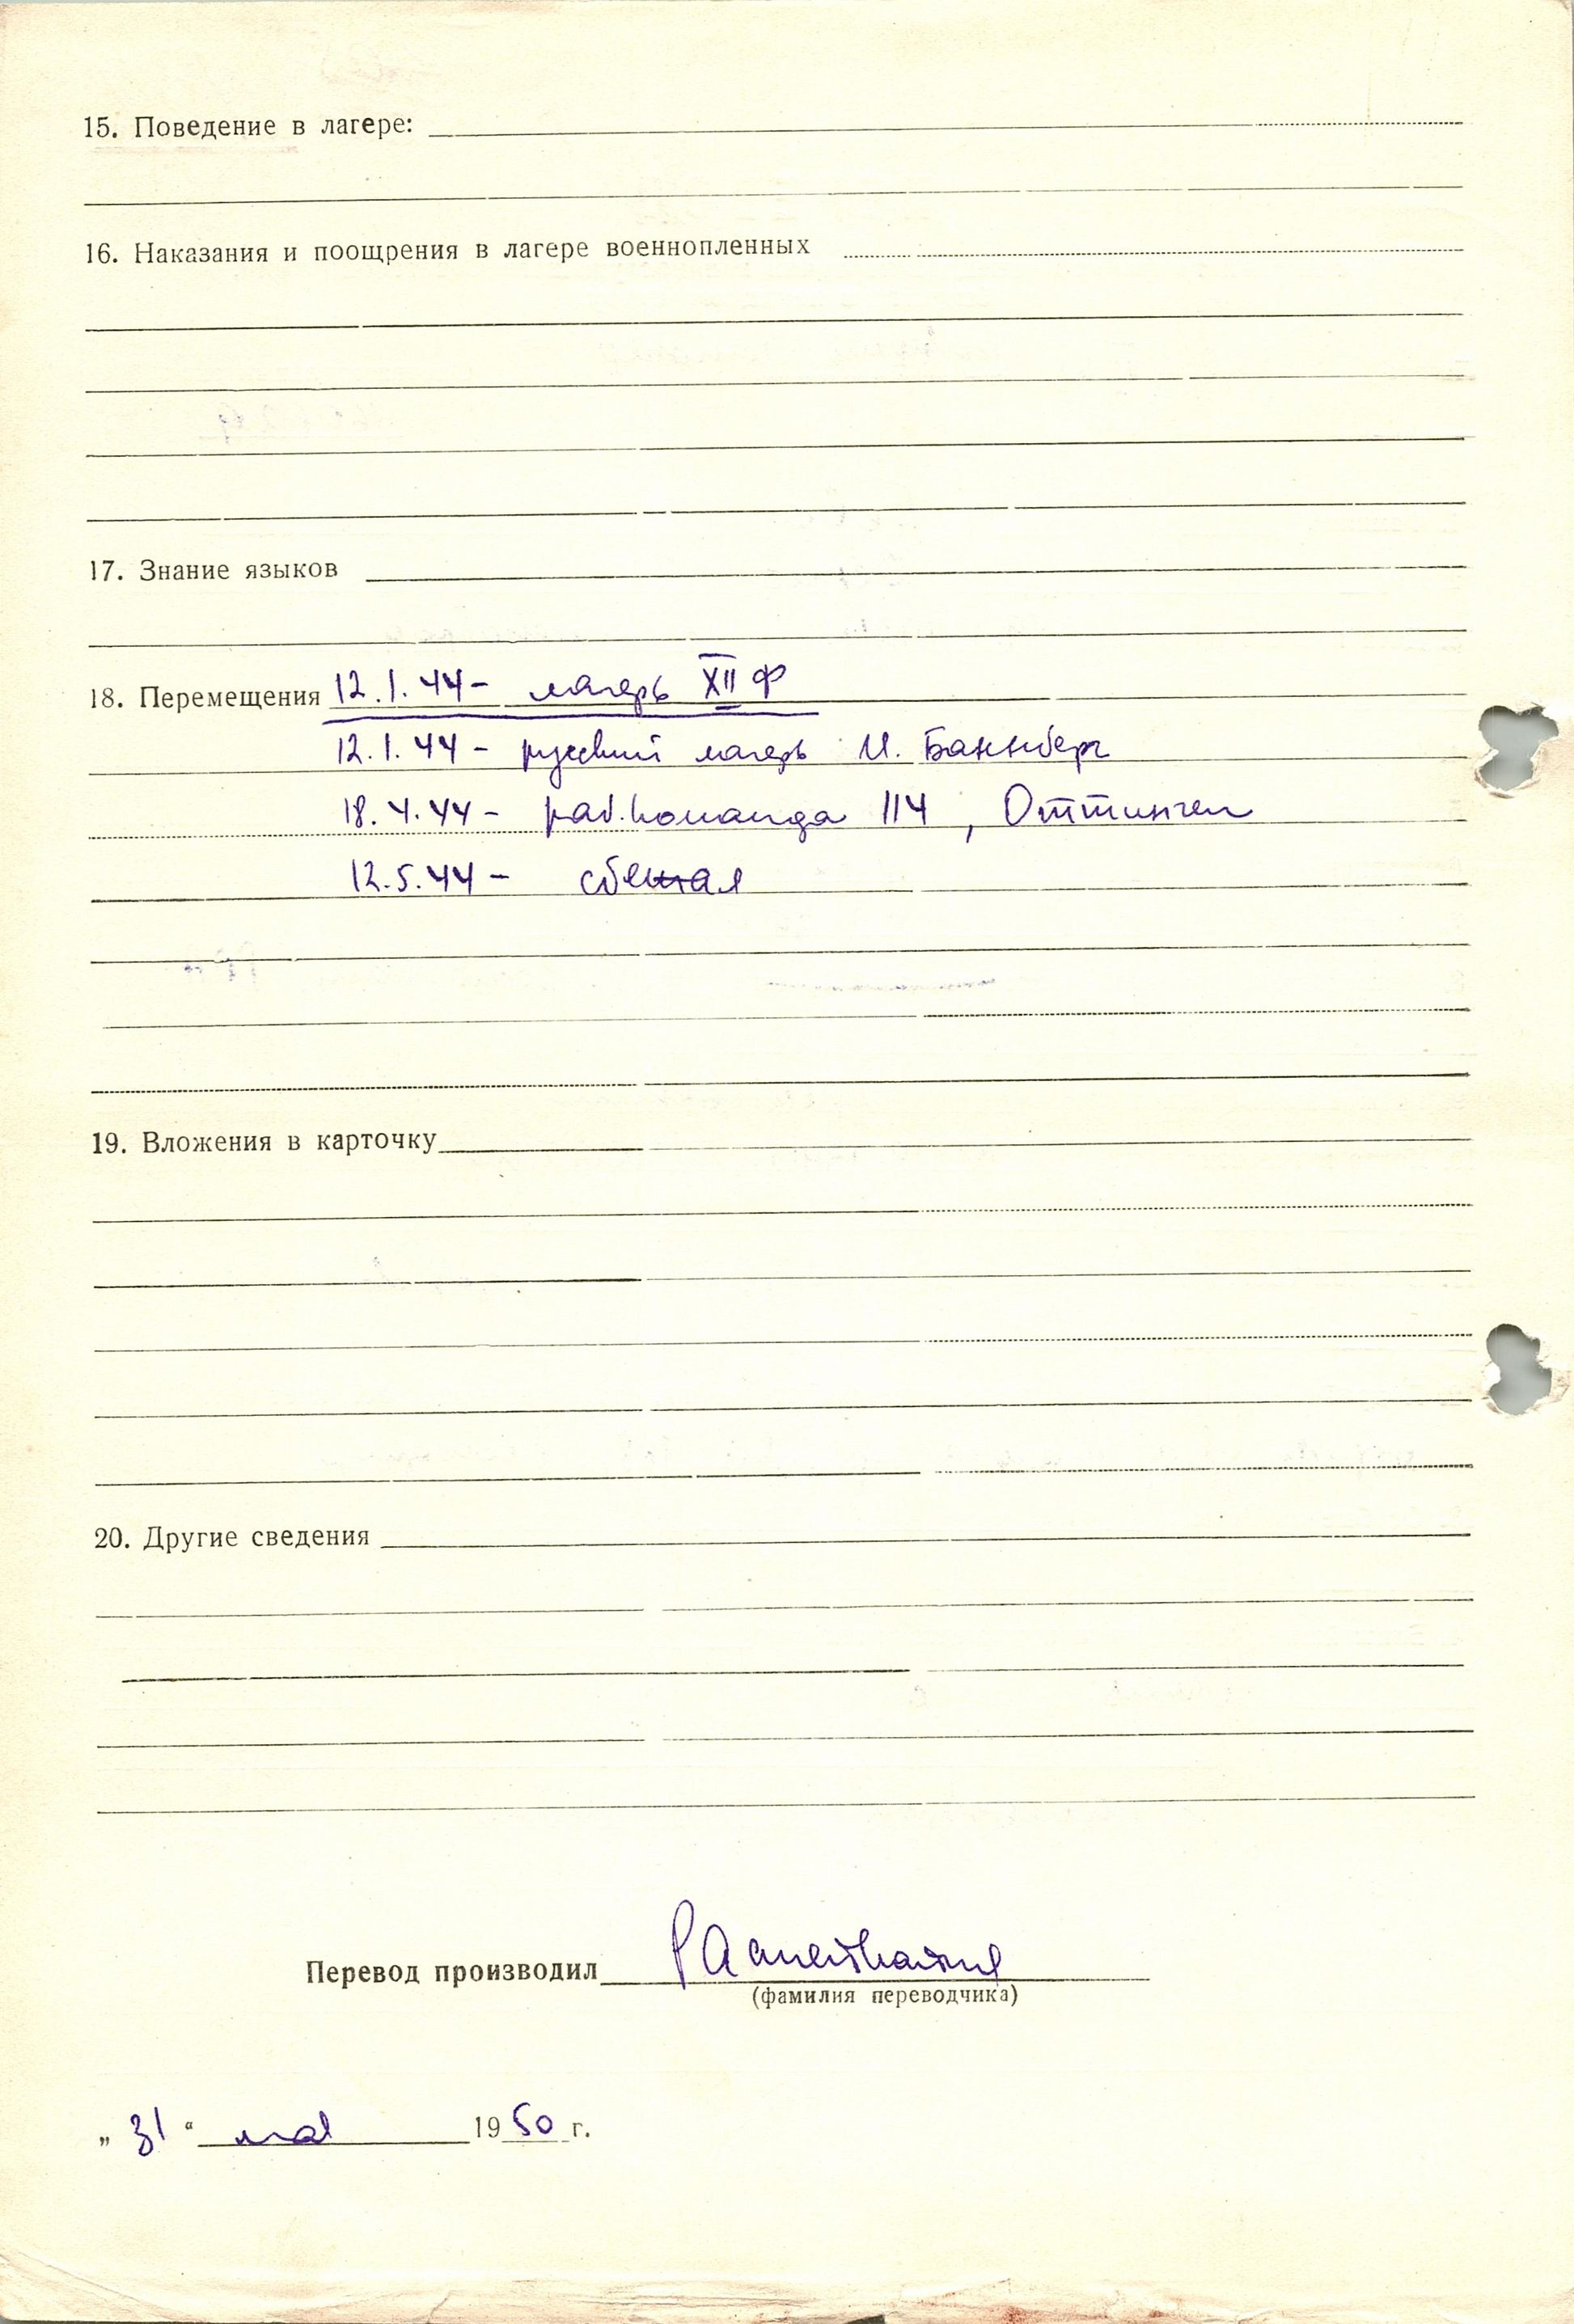 15. Поведение в лагере:
16. Наказания и поощрения в лагере военнопленных
17. Знание языков
18. Перемещения 12.1.44 - лагерь XII Ф
12.1.44 - русский лагерь И. Баннберг
18.4.44 - раб.команда 114, Оттинген
12.5.44 - сбежал
19. Вложения в карточку
20. Другие сведения
Перевод производил
(фамилия переводчика)
„31“ мая 1950 г.